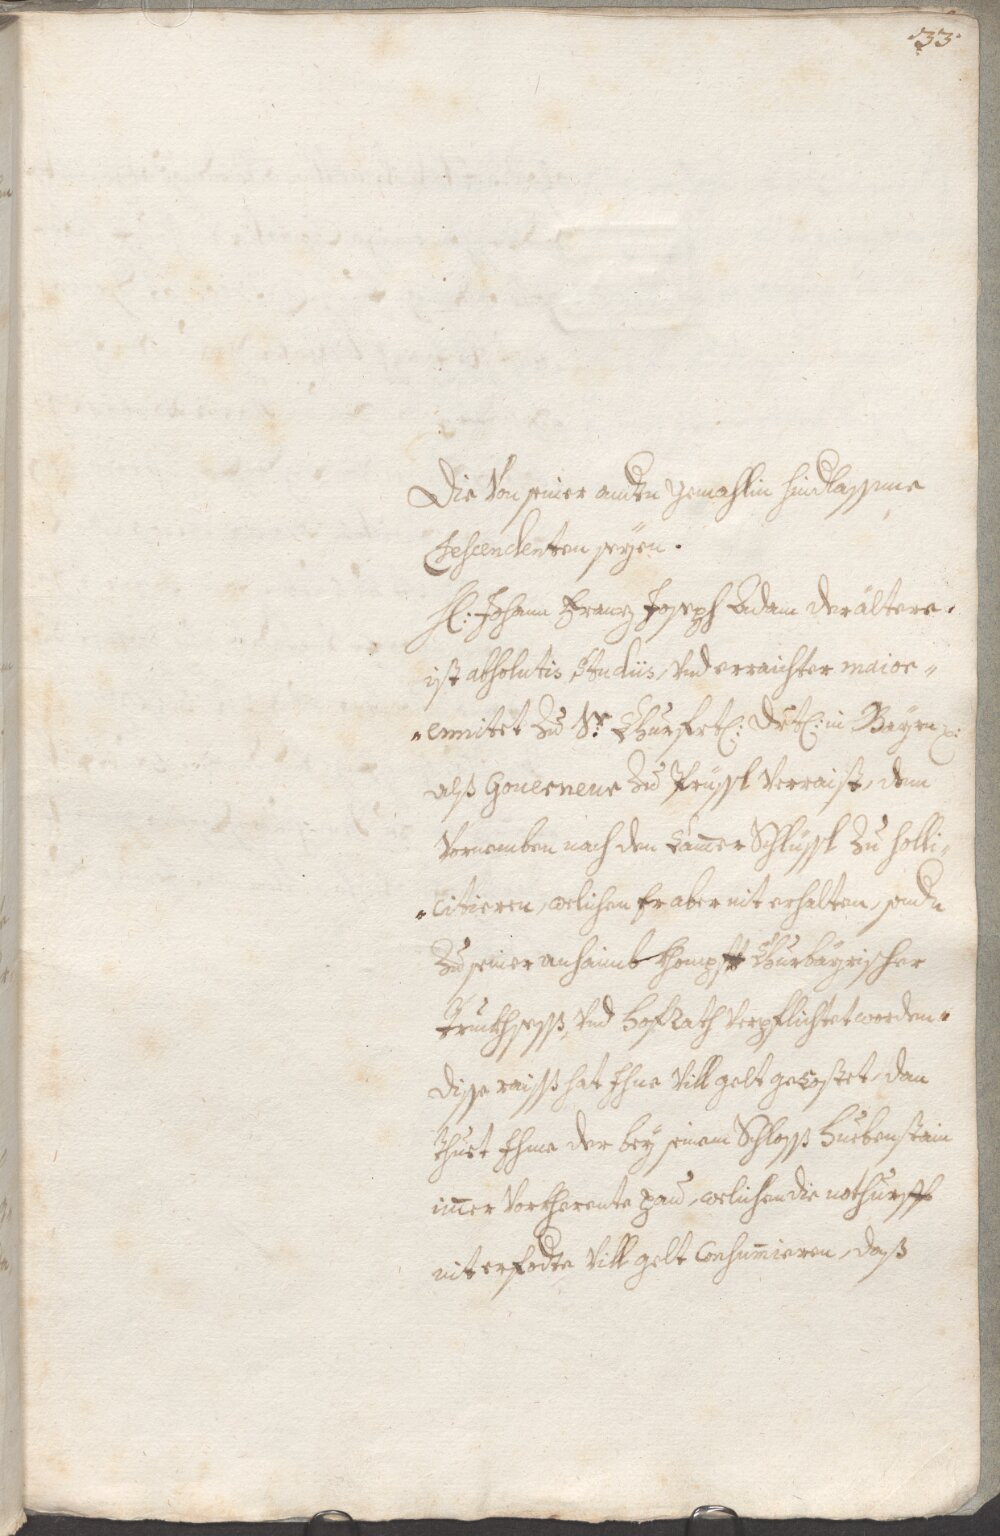 33
Die Von seiner andtn gemahlin hindlassne
Descendenten seyen.
H: Johann Franz Joseph Adam der ältere
ist absolutis Studiis, Vnd erraichter maior„
„ennitet Zu Sr Churfrtl: Drtl: in Bayrn
alß Gouerneur Zu Prüssl Verraist, dem
Vornemben nach den Cam̄er Schlüssl Zu solli„
„citieren, welichen Er aber nit erhalten, sondn
Zu seiner anhaimb Khonpfft Churbayrischer
Truckhsess, Vnd HofRath Verpflichtet worden.
Disse raiss hat Ihne Vill gelt gecostet, dan
thuet Ihme der bey seinem Schloss Huebenstain
im̄er Vorkherente pau, welichen die nothurfft
nit erfodte Vill gelt Consum̄ieren, daß